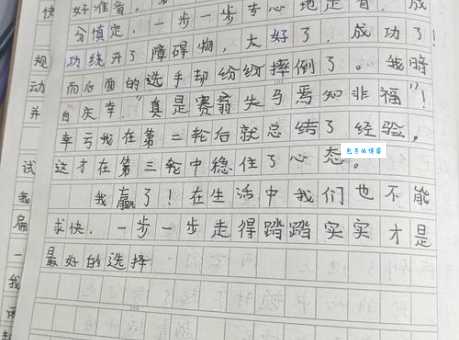 快 好准备,一步一步专心地走着,成
分镇定,一步一步
规 功绕开了障碍物,太好了,成功了!
动 而后面的选手却纷纷摔倒了。我暗
并 自庆幸,"真是赛翁失马焉知非福"!
幸亏我在第二轮后就总结了经验,
试 这才在第三轮中稳住了心态。
我 我赢了!在生活中我们也不能
扁 求快,一步一步走得踏踏实实才是
一 最好的选择
我